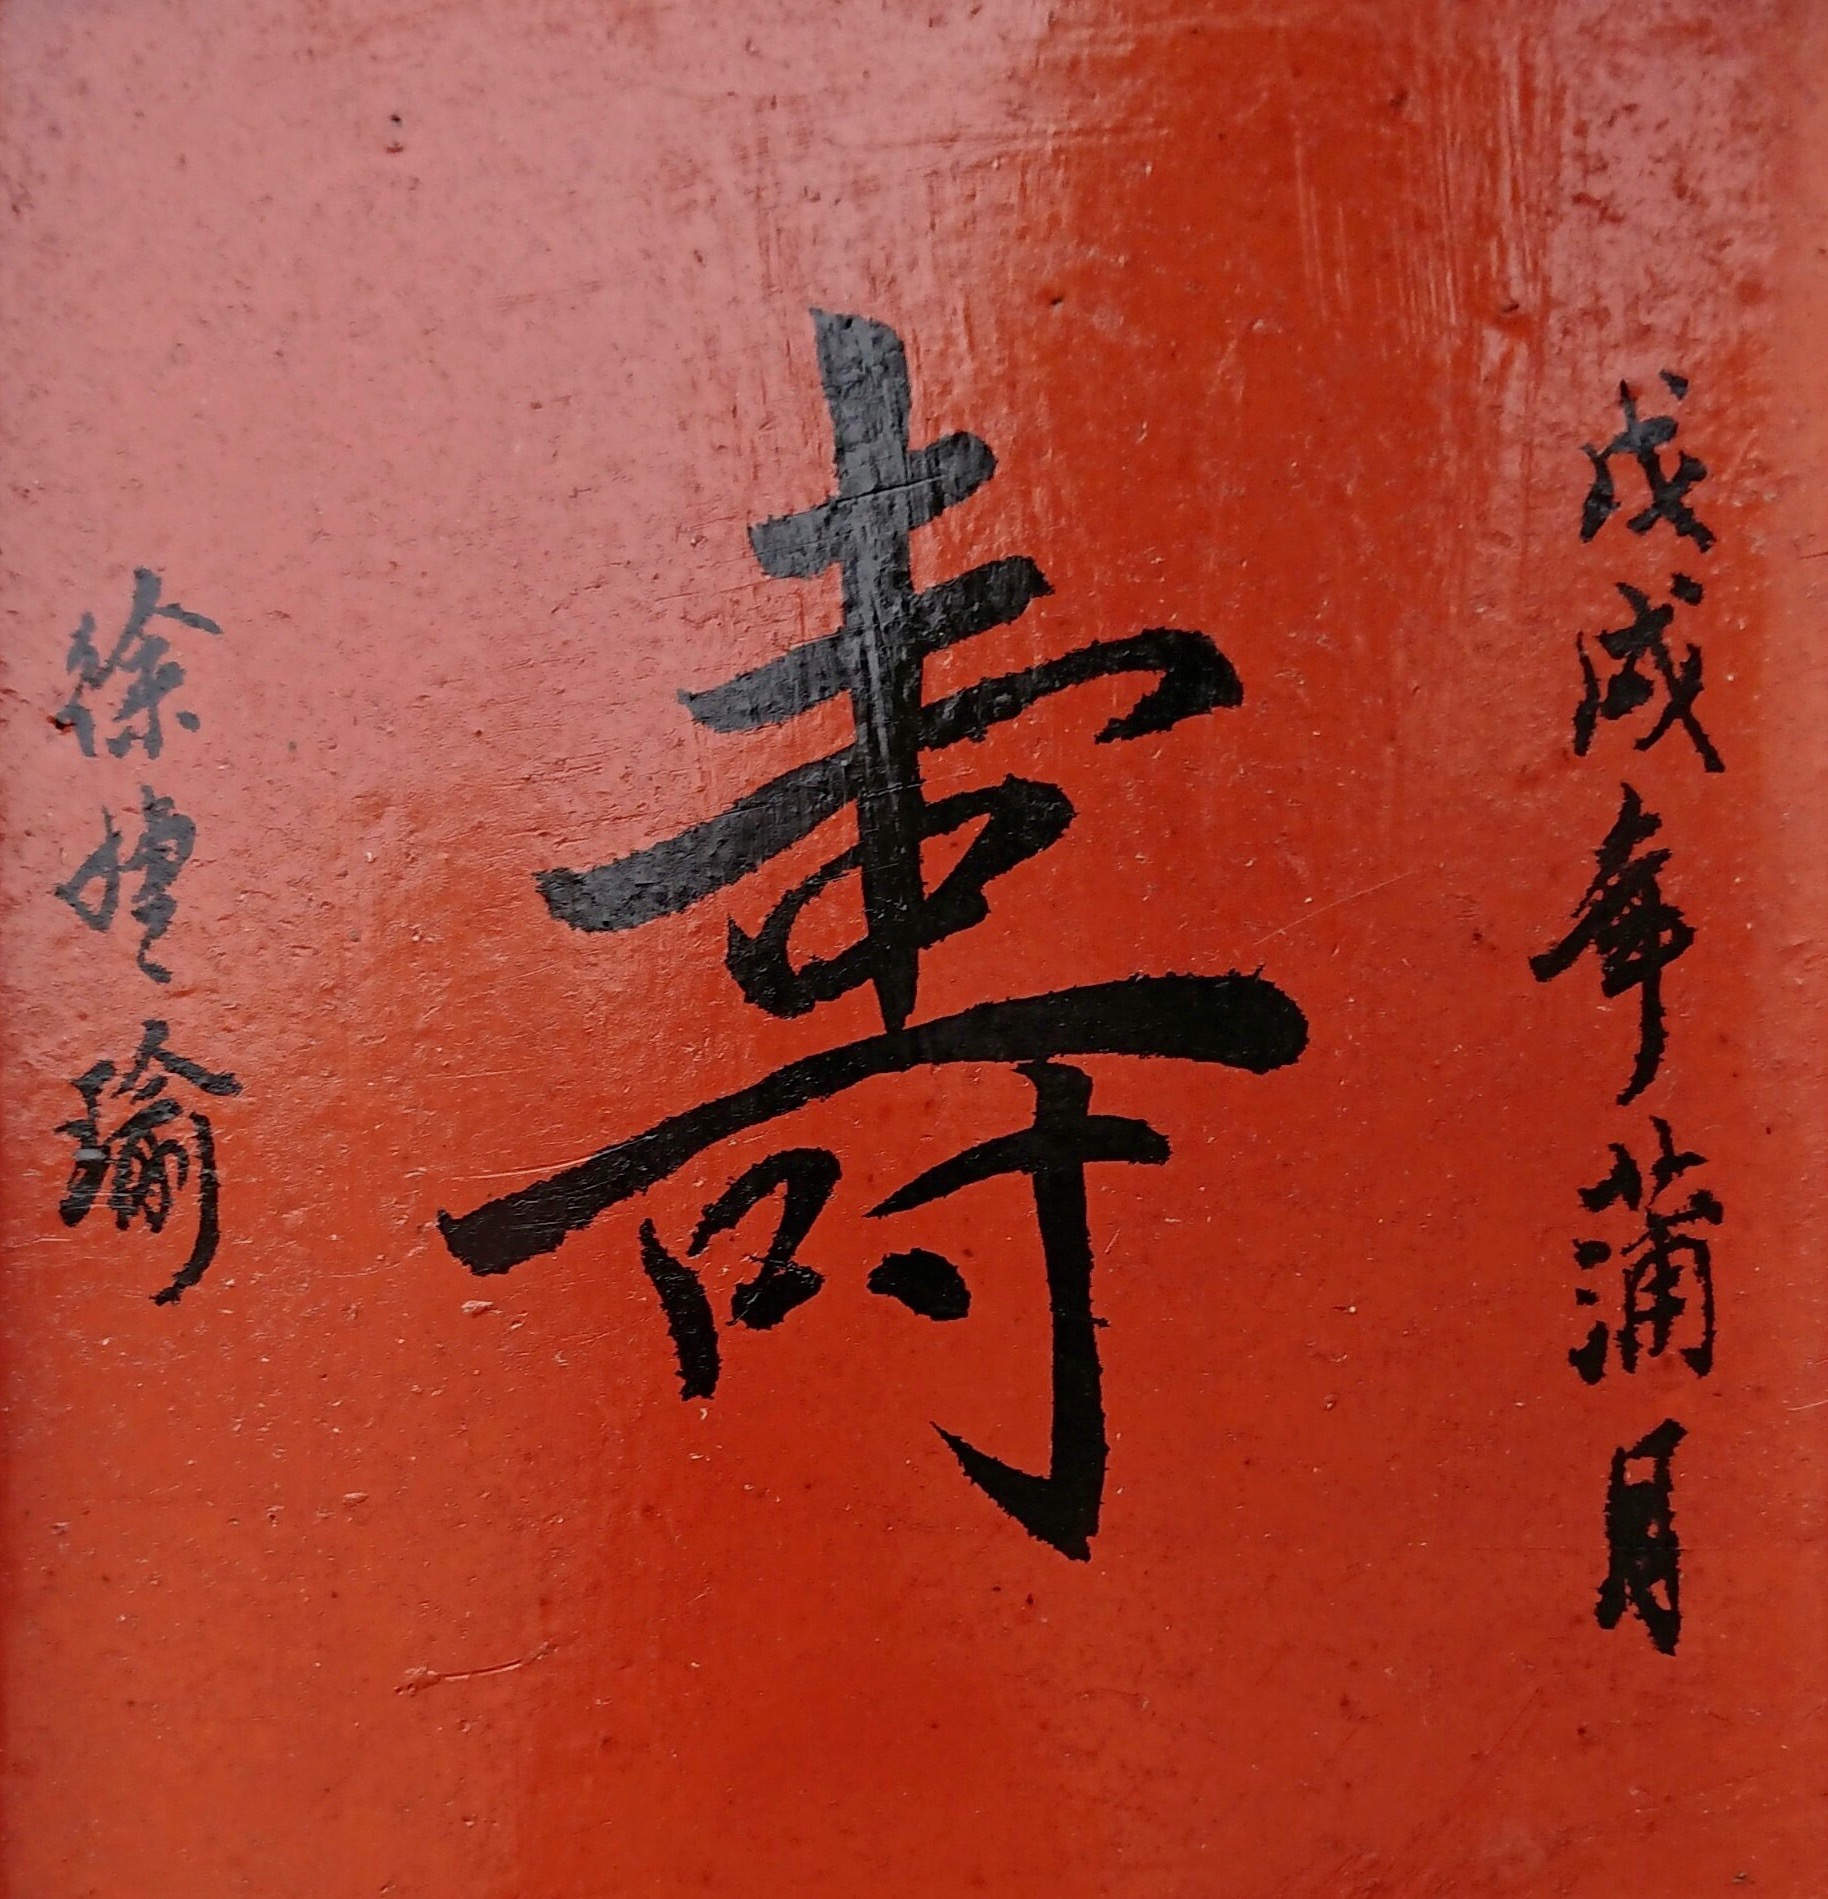 戊戌年蒲月
壽
徐婕瑜